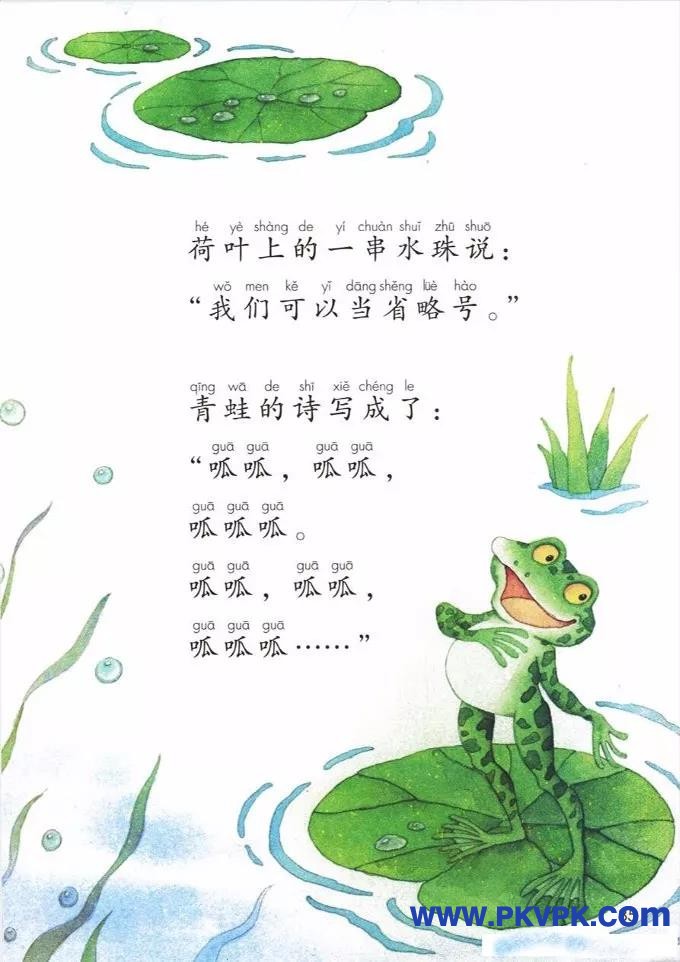 hé yè shàng de yí chuàn shuǐ zhū shuō
荷叶上的一串水珠说：
wǒ men kě yǐ dāng shěng lüè hào
“我们可以当省略号。”
qīng wā de shī xiě chéng le
青蛙的诗写成了：
guā guā guā guā
“呱呱，呱呱，
guā guā guā
呱呱呱。
guā guā guā guā
呱呱，呱呱，
guā guā guā
呱呱呱……”
www.PKVPK.com